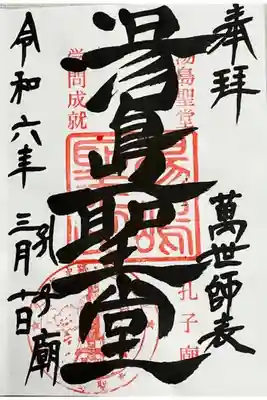 奉拝
萬世師表
湯島聖堂
孔子廟
湯島聖堂
学問成就
孔子廟
令和六年
三月十日